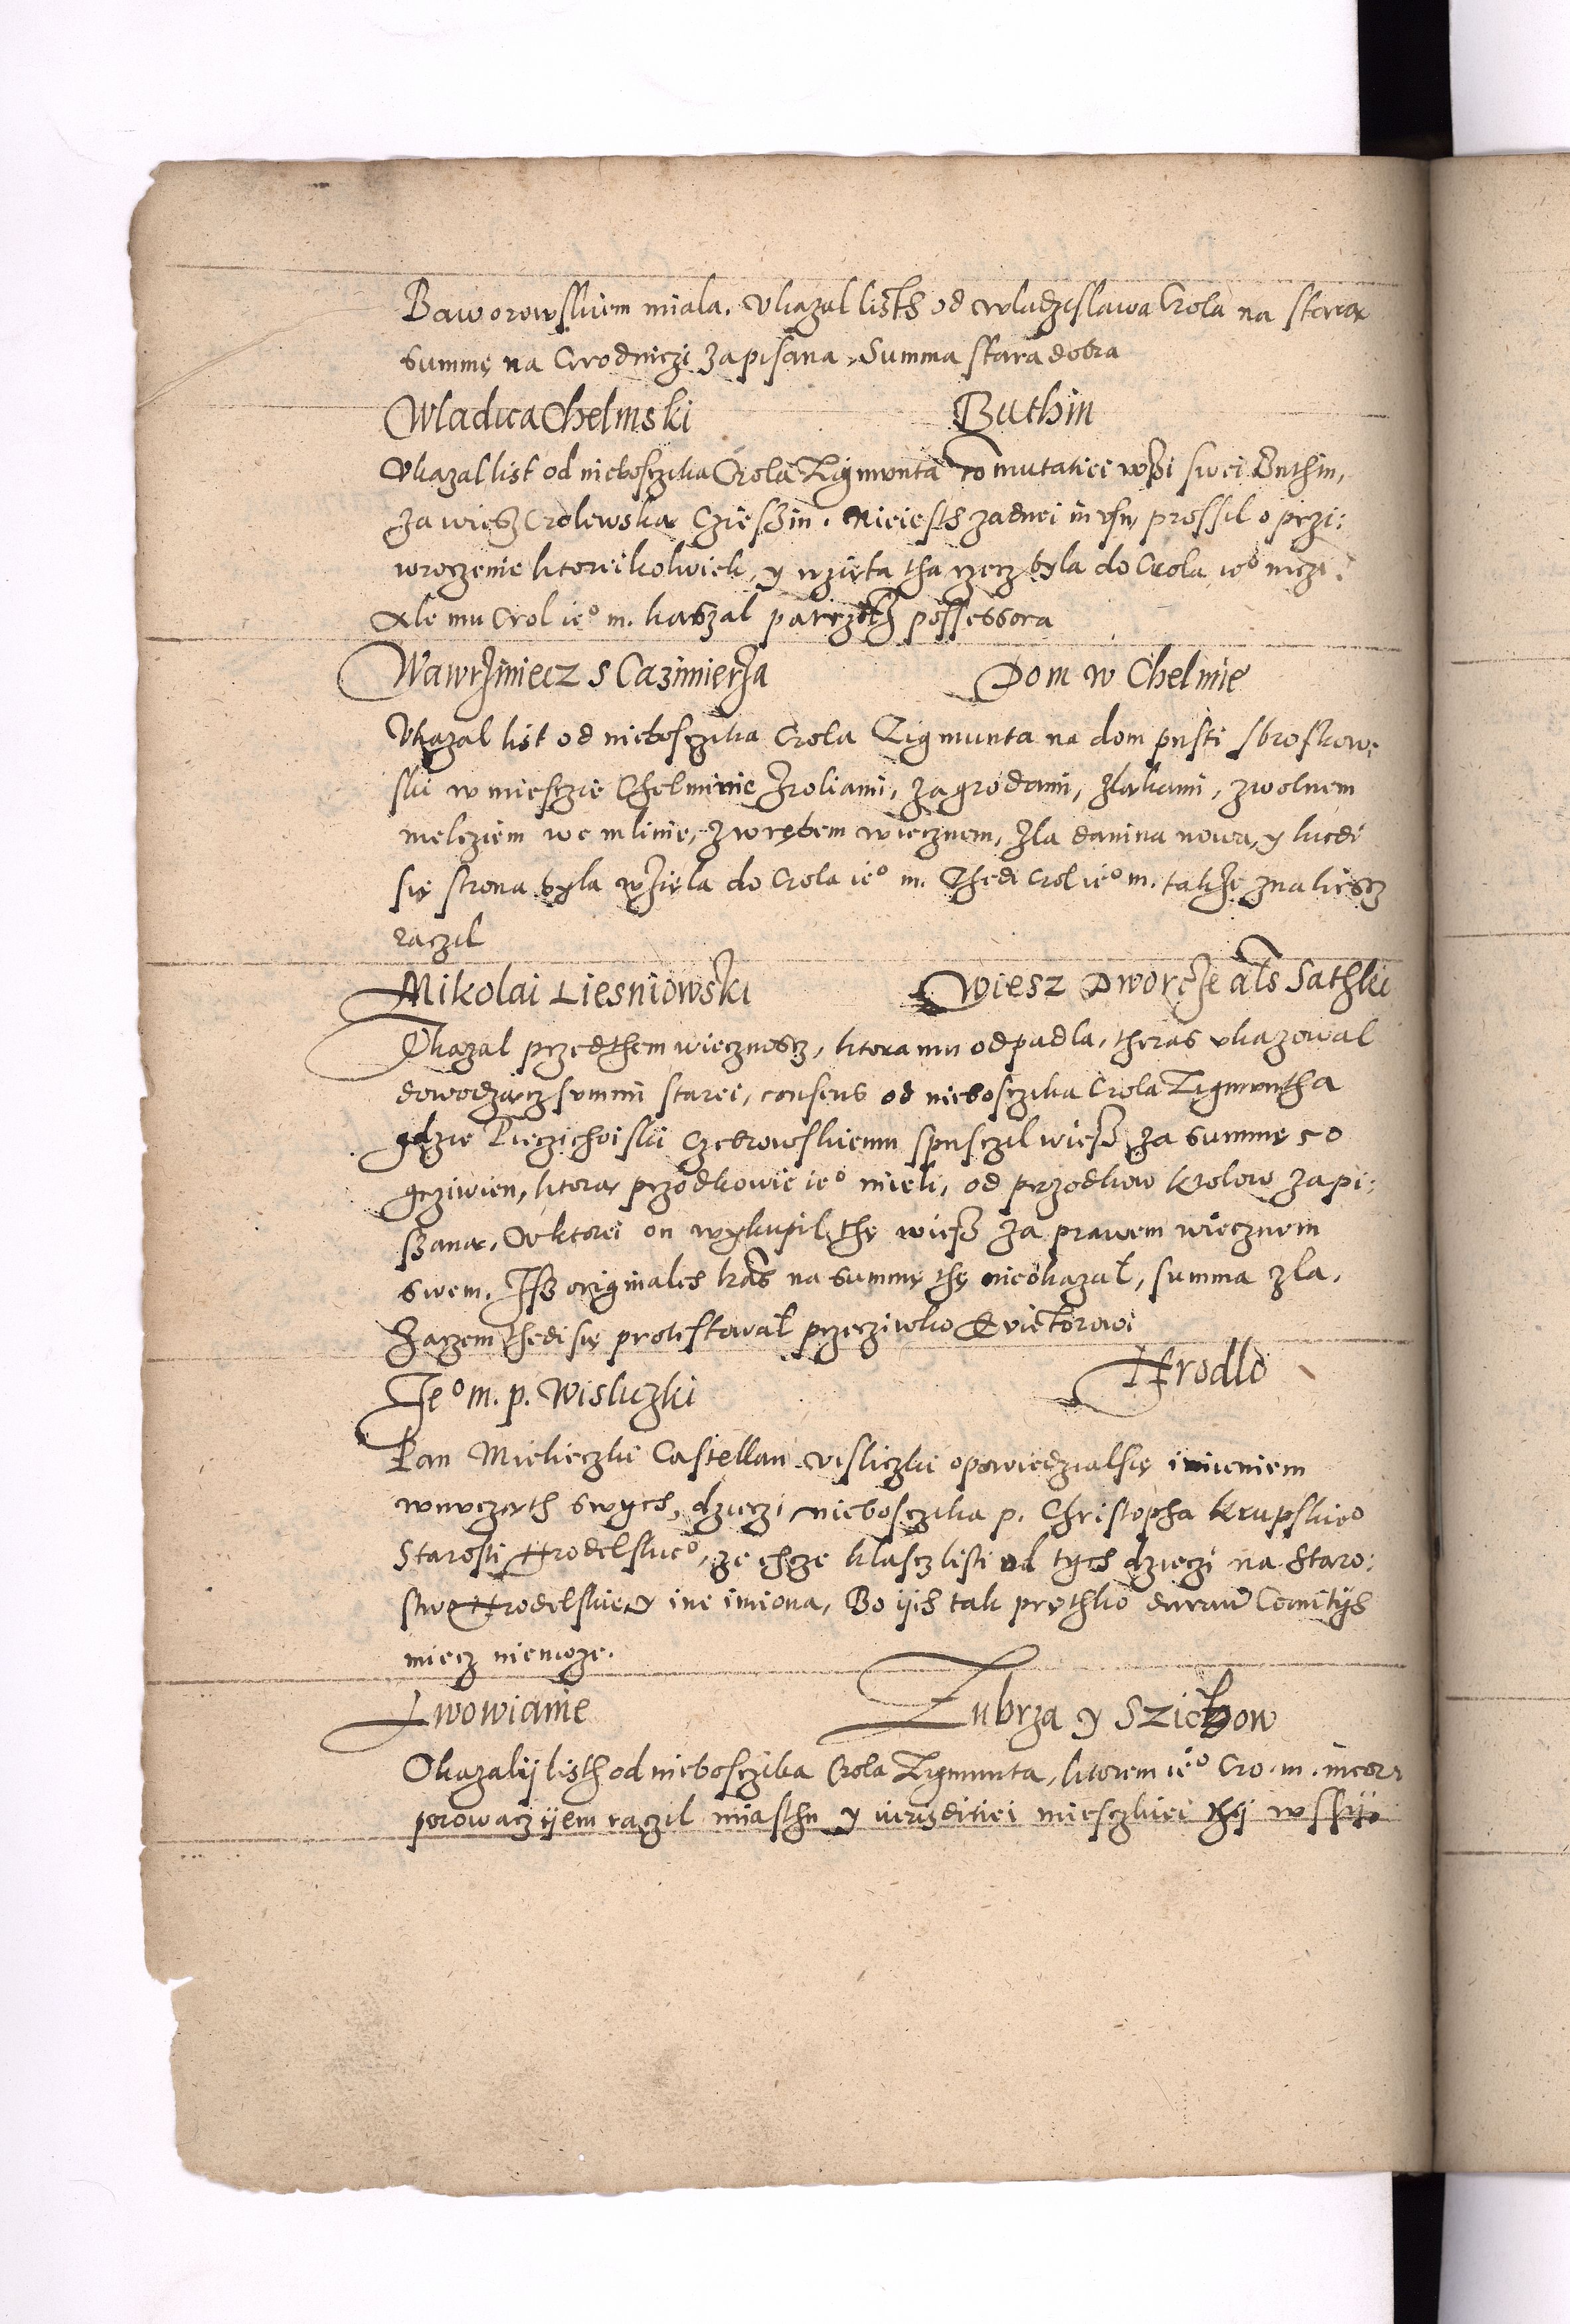 Baworowskiem miala. Ukazal listh od wladzislawa Crola na starą
summę na Grodniczi zapisana, Summa stara dobra
Wladica Chelmski Buthin
Ukazal list od nieboszczika Crola Zigmunta comutatiei wsi swei Buthin,
za wiesz Crolewską Czieszin. Nieiesth zadnei in vsu, prossil o przi:
wroczenie ktoreikolwiek, y wzięta tha rzecz byla do Crola ieº mczi.
Ale mu Crol ieº m. kaszal patrzicz possessora
Wawrziniecz s Cazimierza Dom w Chelmie
Ukazal list od nieboszczika Crola Zigmunta na dom pusti sbroskow:
ski w miesczie Chelminie zroliami, zagrodami, zląkami, zwolnem
melcziem we mlinie, zwrębem wiecznem, zla danina nowa, y kiedi
się strona byla wzięla do Crola ieº m. Thedi Crol ieº m. takze znaliescz
raczil
Mikolai Liesniowski Wiesz Dworcze als Sathki
Ukazal przedthem wiecznoscz, ktora mu odpadla, theras ukazowal
dowodzącz summi starei, consens od nieboszczika Crola Zigmuntha
gdzie Pieczichoiski Czebrowskiemu spusczil wiesz za summę 50
grziwien, ktorą przodkowie ieº mieli, od przodkow krolow zapi:
szaną, Od ktorei on wykupil thę wiesz za prawem wiecznem
swem. Isz originales lras na summę thę nieokazal, summa zla.
Zaczem thedi się protestowal przecziwko Evictorowi
Ieº m. p. Wisliczki Hrodlo
Pan Mielieczki Castellan visliczki opowiedzialsię imieniem
wnucząth swych, dzieczi nieboszczika p. Christopha Krupskieº
Starosti Hrodelskieº, ze chcze klascz listi od tych dzieczi na Staro:
stwo Hrodelskie y ine imiona, Bo iich tak pręthko durantibus Comitijs
miecz niemoze.
Lwowianie Zubrza y Szichow
Okazalij listh od nieboszczika Crola Zigmunta, ktorem ieº Cro. m. incor
porowacz ijem raczil miasthu y iurisditiei miesczkiei thij wssij